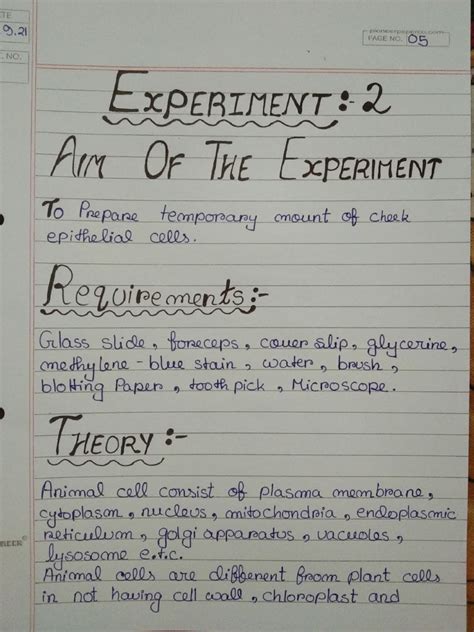 TE
9.21
pioneerpaperco.com
PAGE NO. 05
. NO.
EXPERIMENT :- 2
AIM OF THE EXPERIMENT
To Prepare temporary mount of cheek
epithelial cells.
Requirements :-
Glass slide, forceps, cover slip, glycerine,
methylene - blue stain, water, brush,
blotting Paper, tooth pick, Microscope.
THEORY :-
Animal cell consist of plasma membrane,
cytoplasm, nucleus, mitochondria, endoplasmic
reticulum, golgi apparatus, vacuoles,
lysosome e.t.c.
Animal cells are different from plant cells
in not having cell wall, chloroplast and